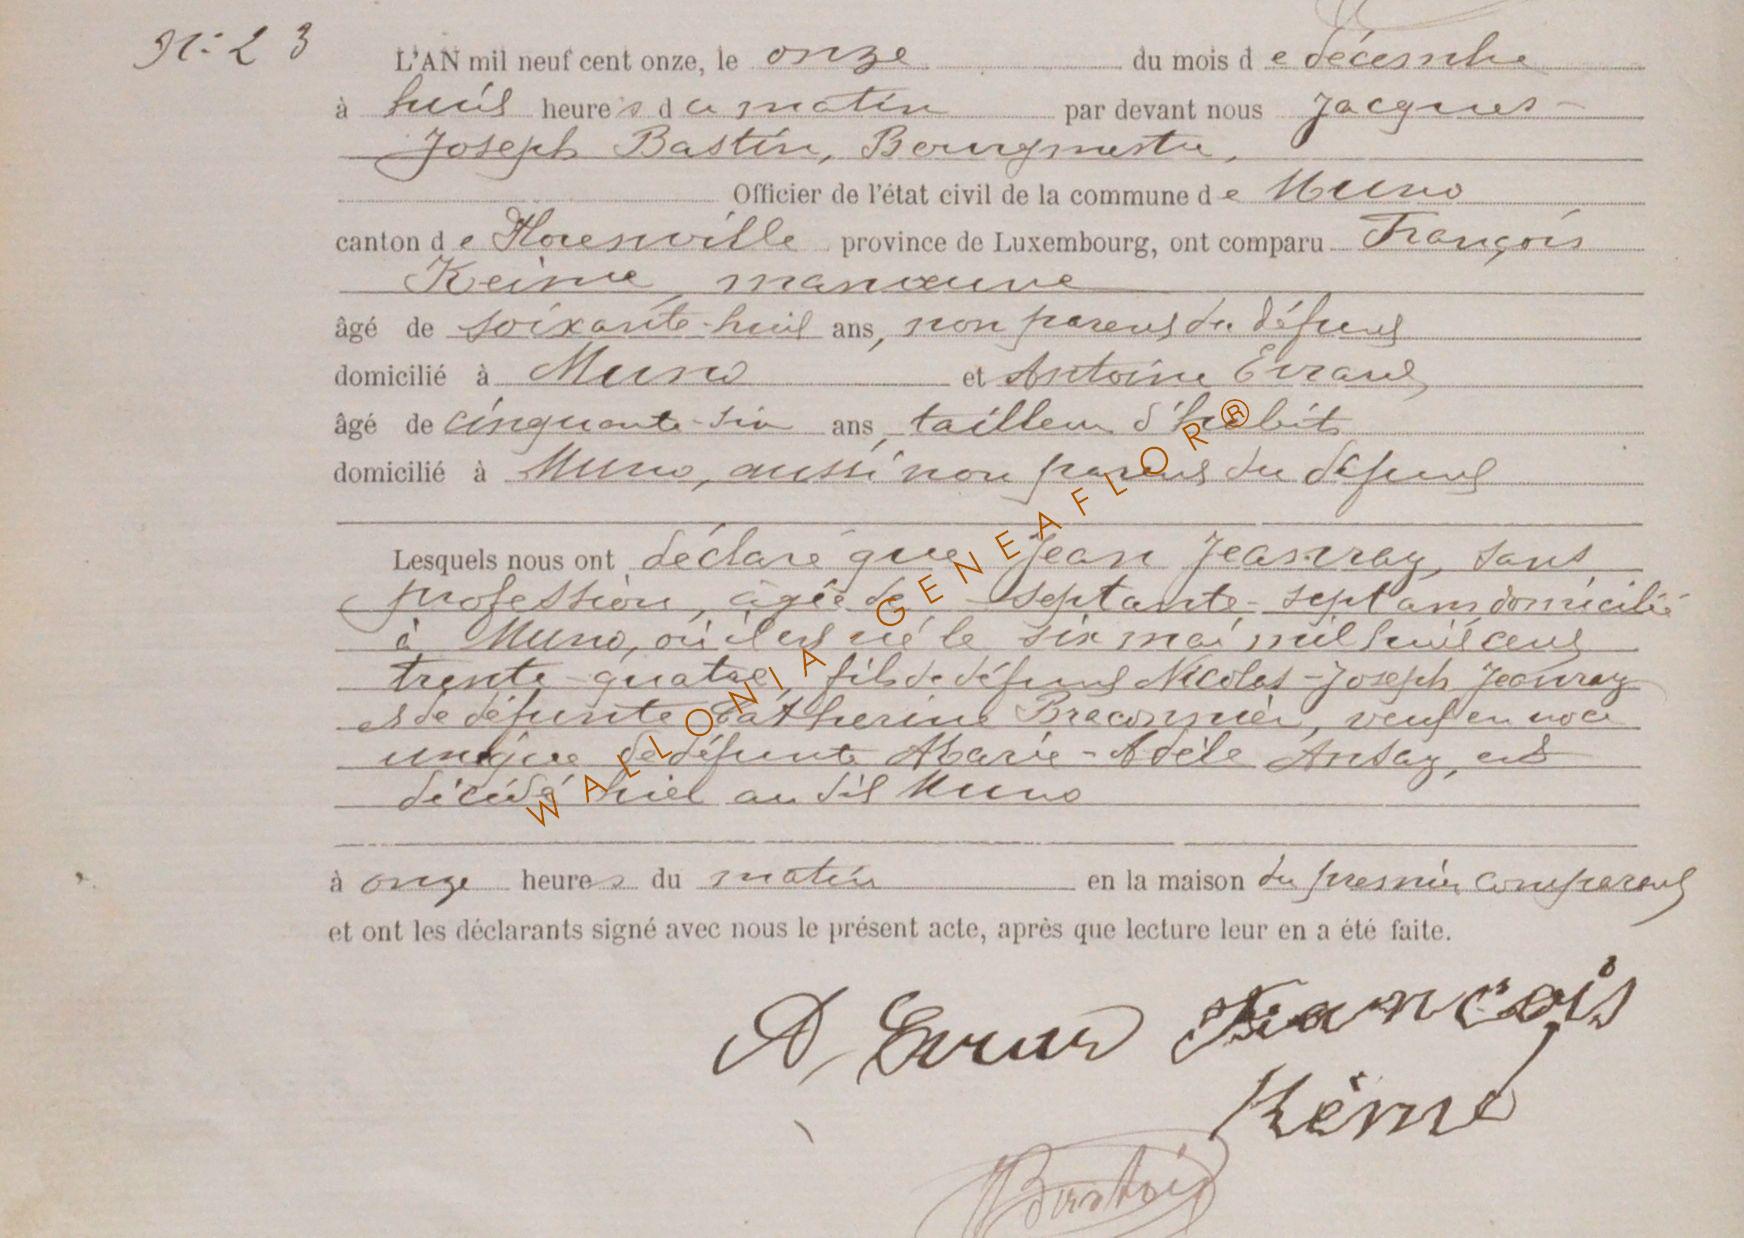 N° 23
L'AN mil neuf cent onze, le onze du mois de décembre
à huit heures du matin par devant nous Jacques-
Joseph Bastin, Bourgmestre,
Officier de l'état civil de la commune de Muno
canton de Florenville province de Luxembourg, ont comparu François
Keime, manœuvre
âgé de soixante-huit ans, non parent du défunt
domicilié à Muno et Antoine Evrard,
âgé de cinquante-six ans, tailleur d'habits
domicilié à Muno, aussi non parent du défunt
Lesquels nous ont déclaré que Jean Jeanray, sans
profession, âgé de septante-sept ans domicilié
à Muno, où il est né le six mai mil huit cent
trente-quatre, fils de défunt Nicolas-Joseph Jeanray
et de défunte Catherine Braconnier, veuf en noce
unique de défunte Marie-Adèle Ansay, est
décédé hier au dit Muno
à onze heures du matin en la maison du premier comparant
et ont les déclarants signé avec nous le présent acte, après que lecture leur en a été faite.
A, Evrard François
Kéime
Bastin
WALLONIA GENEAFLOR®